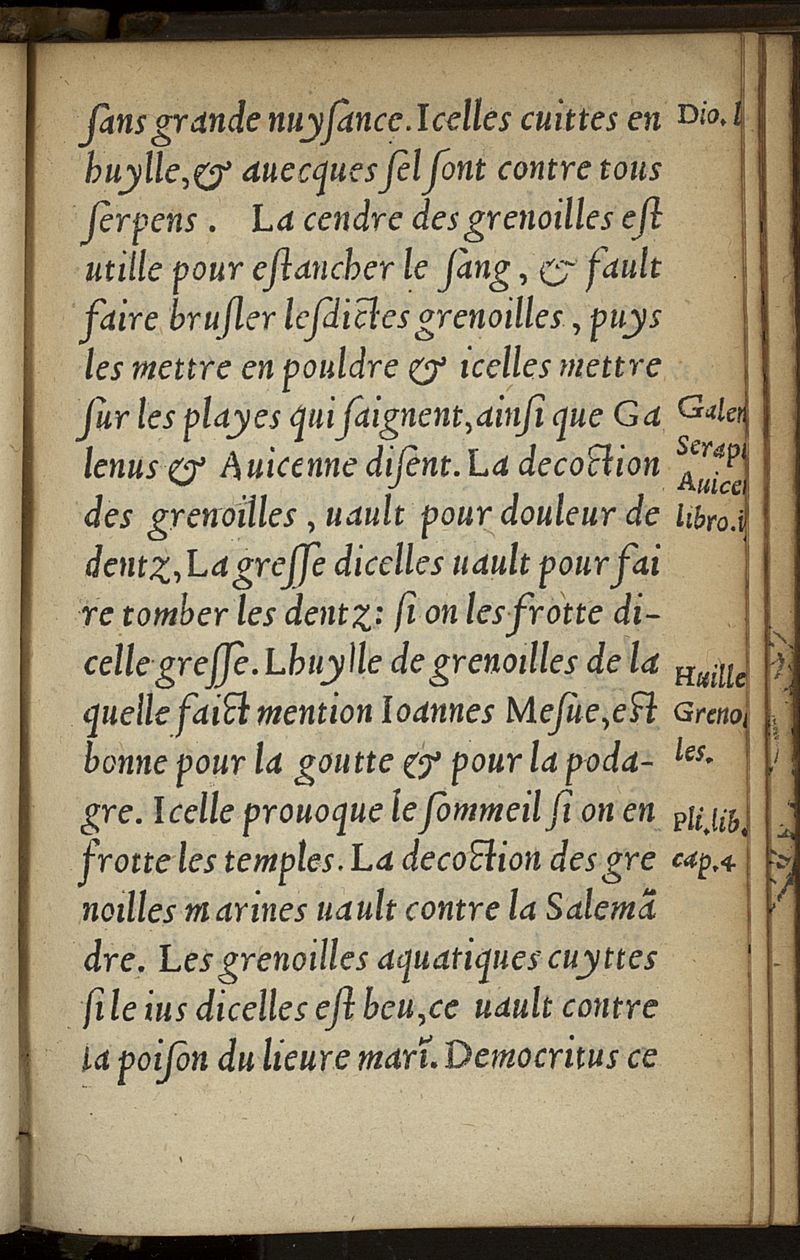 ſans grande nuyſance. Icelles cuittes en
huylle, & auecques ſel ſont contre tous
ſerpens . La cendre des grenoilles eſt
utille pour eſtancher le ſang , & fault
faire bruſler leſdictes grenoilles , puys
les mettre en pouldre & icelles mettre
ſur les playes qui ſaignent, ainſi que Ga
lenus & Auicenne diſent. La decoction
des grenoilles , uault pour douleur de
dentz, La greſſe dicelles uault pour fai
re tomber les dentz: ſi on les frotte di-
celle greſſe. Lhuylle de grenoilles de la
quelle faict mention Ioannes Meſue, eſt
bonne pour la goutte & pour la poda-
gre. Icelle prouoque le ſommeil ſi on en
frotte les temples. La decoction des gre
noilles marines uault contre la Salemã
dre. Les grenoilles aquatiques cuyttes
ſi le ius dicelles eſt beu, ce uault contre
la poiſon du lieure marĩ. Democritus ce
Dio. l
Galen
Serapi
Auicen
libro.i
Huille
Greno
les.
Pli.lib.
cap.4